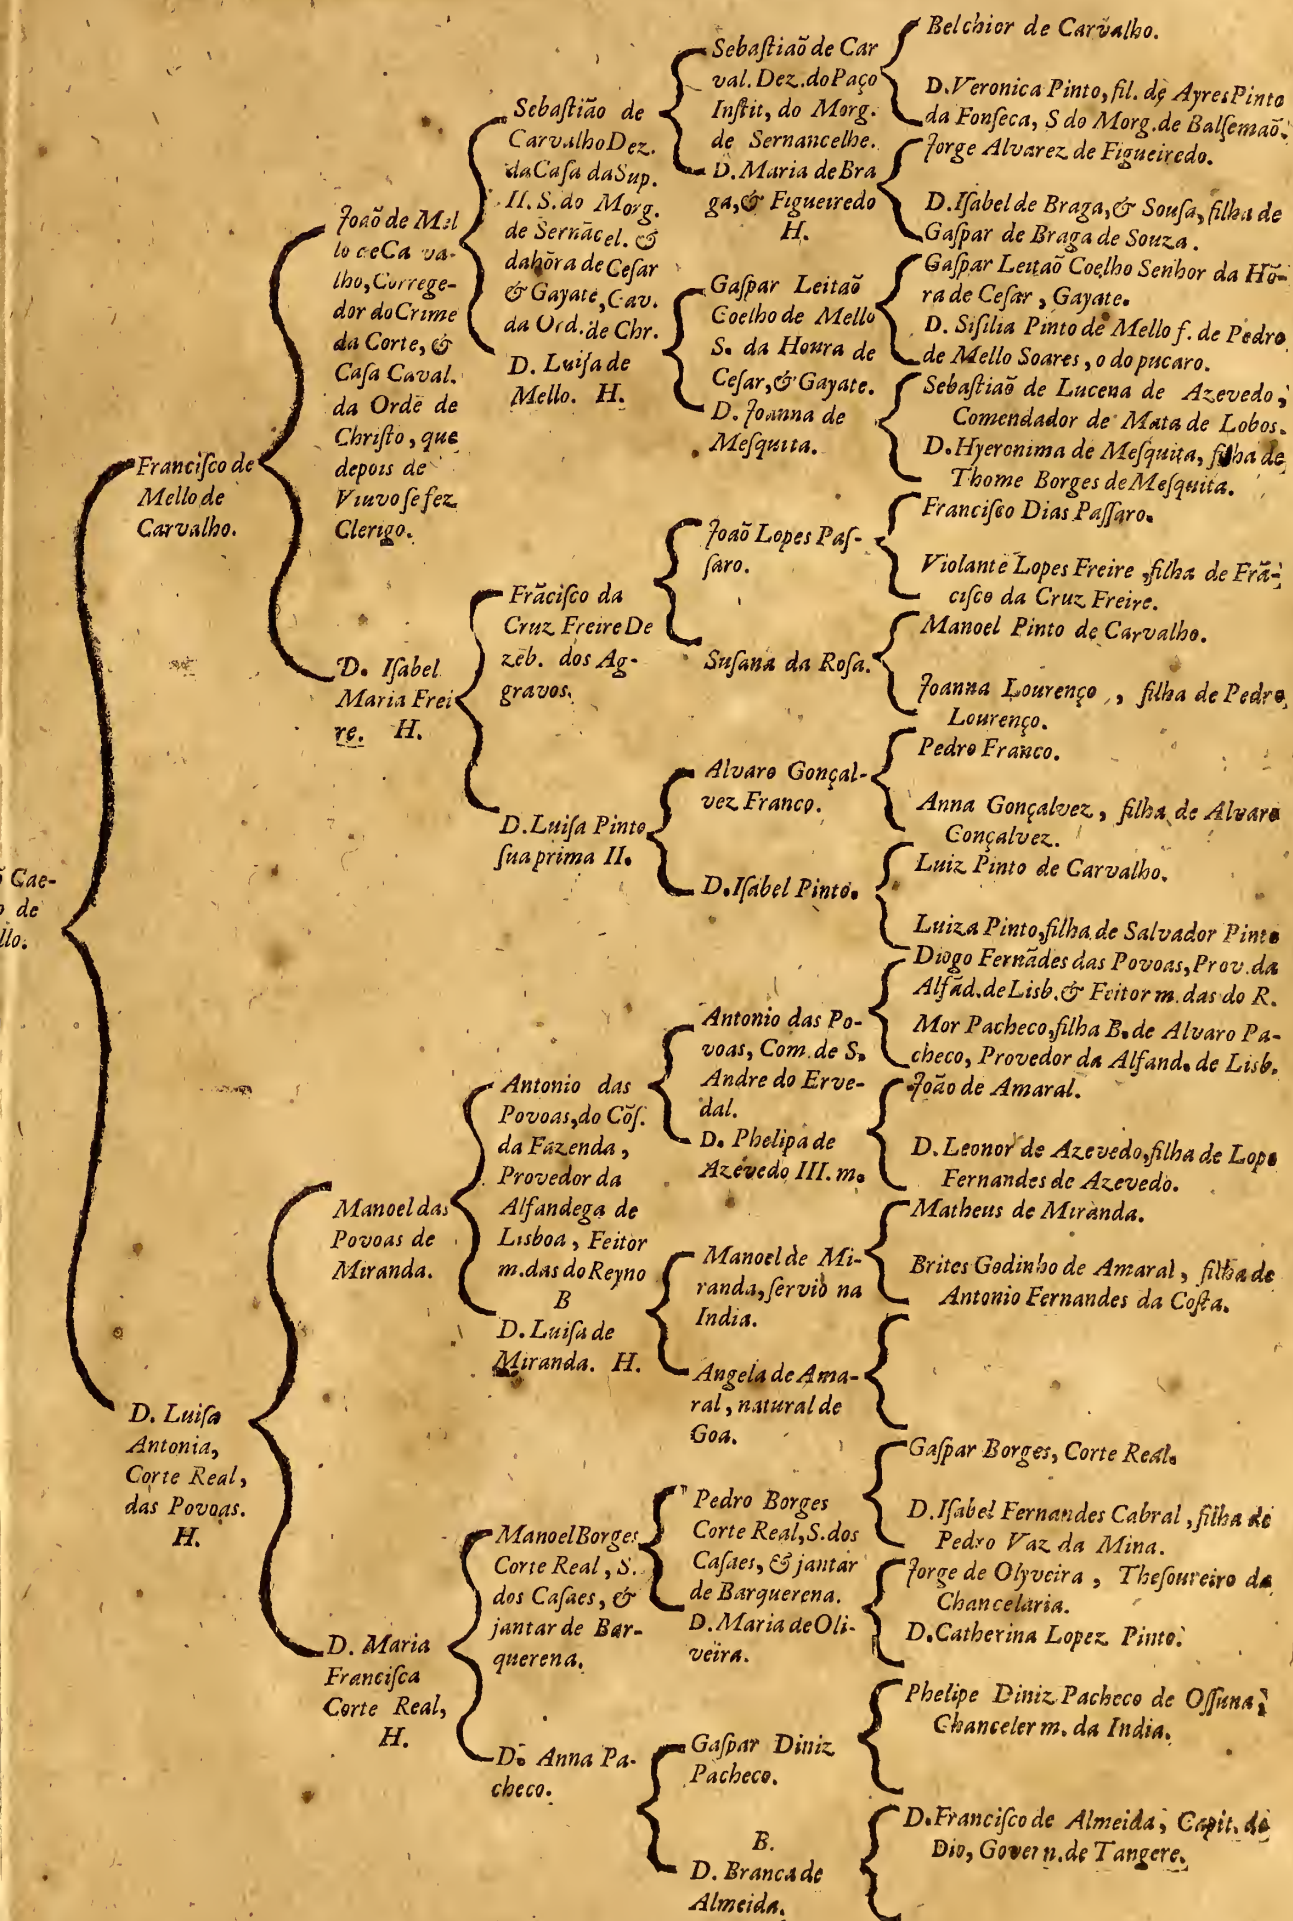 õ Cae-
o de
llo.
Franciſco de
Mello de
Carvalho.
D. Luiſa
Antonia,
Corte Real,
das Povoas.
H.
João de Mel
lo de Ca va-
lho, Correge-
dor do Crime
da Corte, &
Caſa Caval.
da Ordē de
Chriſto, que
depois de
Viuvo ſe fez
Clerigo.
D. Iſabel
Maria Frei
re. H.
Manoel das
Povoas de
Miranda.
D. Maria
Franciſca
Corte Real,
H.
Sebaſtião de
Carvalho Dez.
da Caſa da Sup.
II. S. do Morg.
de Sernācel. &
dahōra de Ceſar
& Gayate, Cav.
da Ord. de Chr.
D. Luiſa de
Mello. H.
Frāciſco da
Cruz Freire De
zēb. dos Ag-
gravos.
D. Luiſa Pinto
ſua prima II.
Antonio das
Povoas, do Cōſ.
da Fazenda,
Provedor da
Alfandega de
Lisboa, Feitor
m. das do Reyno
B
D. Luiſa de
Miranda. H.
Manoel Borges
Corte Real, S.
dos Caſaes, &
jantar de Bar-
querena.
D. Anna Pa-
checo.
Sebaſtiaõ de Car
val. Dez. do Paço
Inſtit, do Morg.
de Sernancelhe.
D. Maria de Bra
ga, & Figueiredo
H.
Gaſpar Leitaõ
Coelho de Mello
S. da Honra de
Ceſar, & Gayate.
D. Joanna de
Meſquita.
Joaõ Lopes Paſ-
ſaro.
Suſana da Roſa.
Alvaro Gonçal-
vez Franco.
D. Iſabel Pinto.
Antonio das Po-
voas, Com. de S.
Andre do Erve-
dal.
D. Phelipa de
Azevedo III. m.
Manoel de Mi-
randa, ſervio na
India.
Angela de Ama-
ral, natural de
Goa.
Pedro Borges
Corte Real, S. dos
Caſaes, & jantar
de Barquerena.
D. Maria de Oli-
veira.
Gaſpar Diniz
Pacheco.
B.
D. Branca de
Almeida.
Belchior de Carvalho.
D. Veronica Pinto, fil. de Ayres Pinto
da Fonſeca, S do Morg. de Balſemaõ.
Jorge Alvarez de Figueiredo.
D. Iſabel de Braga, & Souſa, filha de
Gaſpar de Braga de Souza.
Gaſpar Leitaõ Coelho Senhor da Hō-
ra de Ceſar, Gayate.
D. Siſilia Pinto de Mello f. de Pedro
de Mello Soares, o do pucaro.
Sebaſtiaõ de Lucena de Azevedo,
Comendador de Mata de Lobos.
D. Hyeronima de Meſquita, filha de
Thome Borges de Meſquita.
Franciſco Dias Paſſaro.
Violante Lopes Freire, filha de Frā-
ciſco da Cruz Freire.
Manoel Pinto de Carvalho.
Joanna Lourenço, filha de Pedro
Lourenço.
Pedro Franco.
Anna Gonçalvez, filha de Alvaro
Gonçalvez.
Luiz Pinto de Carvalho.
Luiza Pinto, filha de Salvador Pinto
Diogo Fernādes das Povoas, Prov. da
Alfād. de Lisb. & Feitor m. das do R.
Mor Pacheco, filha B. de Alvaro Pa-
checo, Provedor da Alfand. de Lisb.
João de Amaral.
D. Leonor de Azevedo, filha de Lopo
Fernandes de Azevedo.
Matheus de Miranda.
Brites Godinho de Amaral, filha de
Antonio Fernandes da Coſta.
Gaſpar Borges, Corte Real.
D. Iſabel Fernandes Cabral, filha de
Pedro Vaz da Mina.
Jorge de Olyveira, Theſoureiro da
Chancelaria.
D. Catherina Lopez Pinto.
Phelipe Diniz Pacheco de Oſſuna,
Chanceler m. da India.
D. Franciſco de Almeida, Capit. de
Dio, Govern. de Tangere.